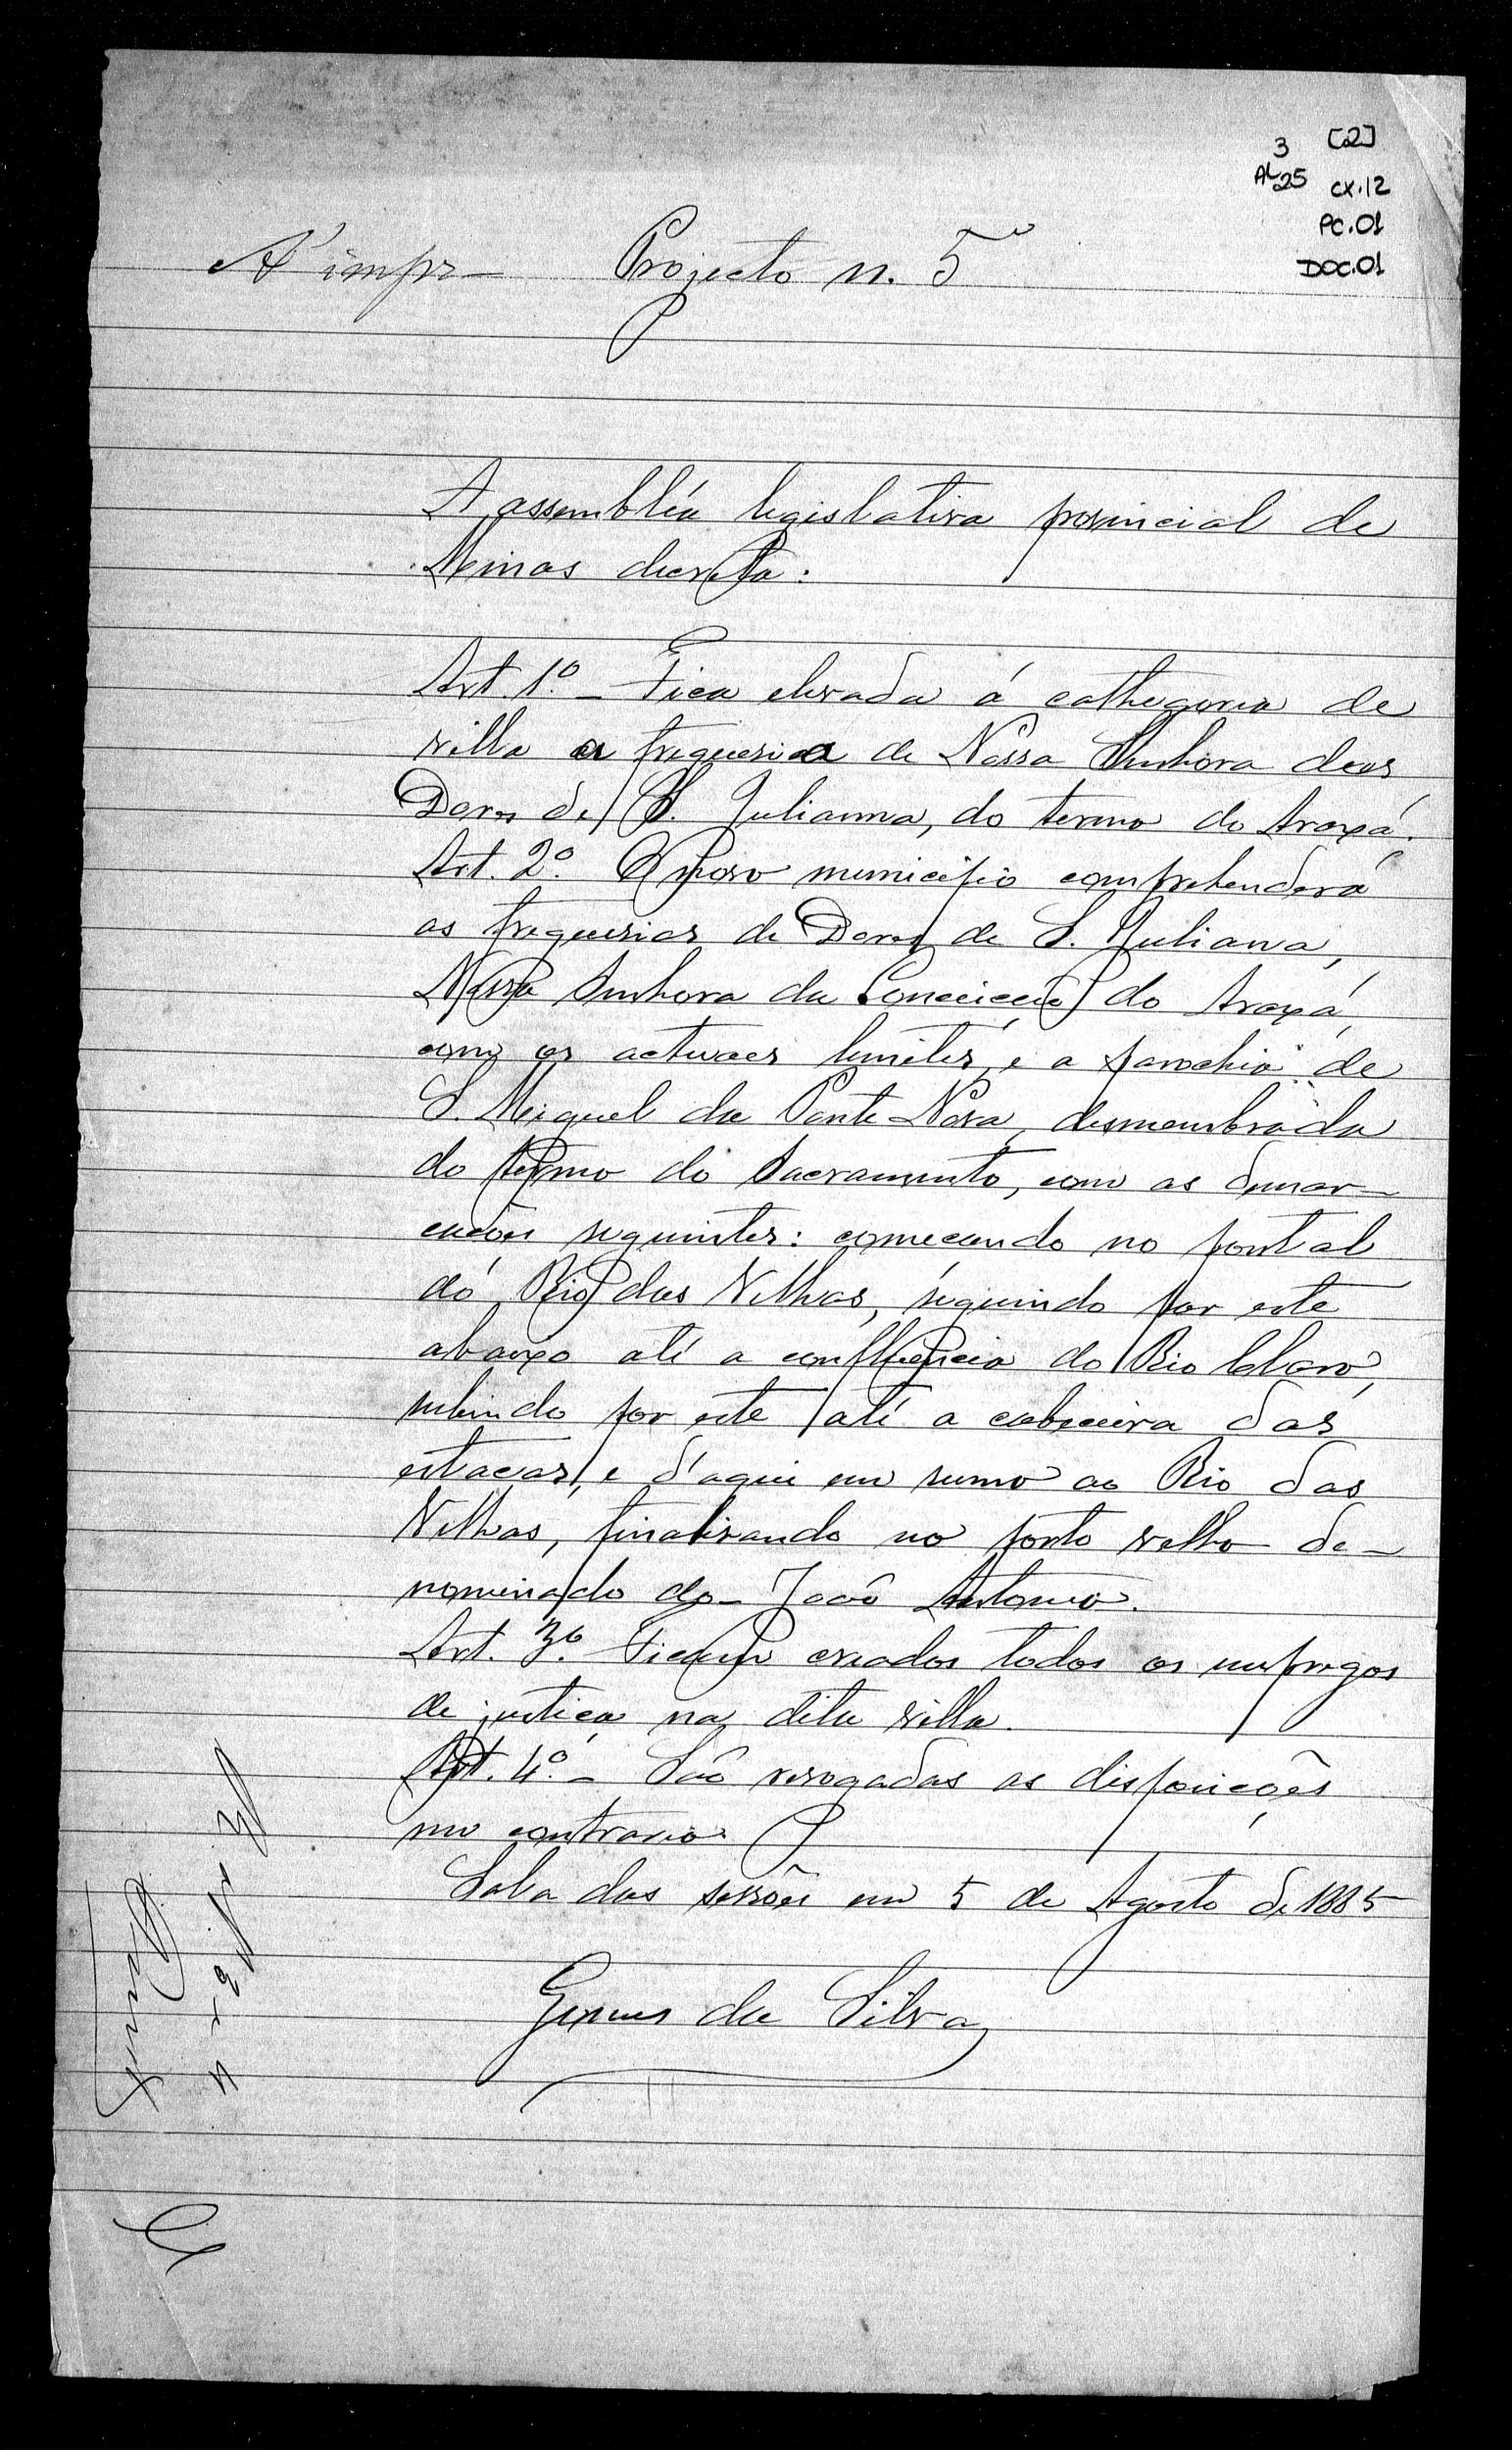 3 [2]
AL 25 CX.12
PC.01
DOC.01
A' impr— Projecto n. 5
A assembléa legislativa provincial de
Minas decreta:
Art. 1º — Fica elevada á cathegoria de
villa a freguesia de Nossa Senhora das
Dores de S. Julianna, do termo do Araxá.
Art. 2º. O novo municipio comprehenderá
as freguesias de Dores de S. Juliana,
Nossa Senhora da Conceição do Araxá,
com os actuaes limites, e a parochia de
S. Miguel da Ponte Nova, desmembrada
do termo do Sacramento, com as demar—
cações seguintes: começando no pontal
do Rio das Velhas, seguindo por este
abaixo até a confluencia do Rio Claro,
subindo por este até a cabeceira das
estacas, e d'aqui em rumo ao Rio das
Velhas, finalisando no porto velho de—
nominado do — João Antonio.
Art. 3º. Ficam creados todos os empregos
de justiça na dita villa.
Art. 4º. — São revogadas as disposições
em contrario.
Sala das sessões em 5 de Agosto de 1885
Gomes da Silva